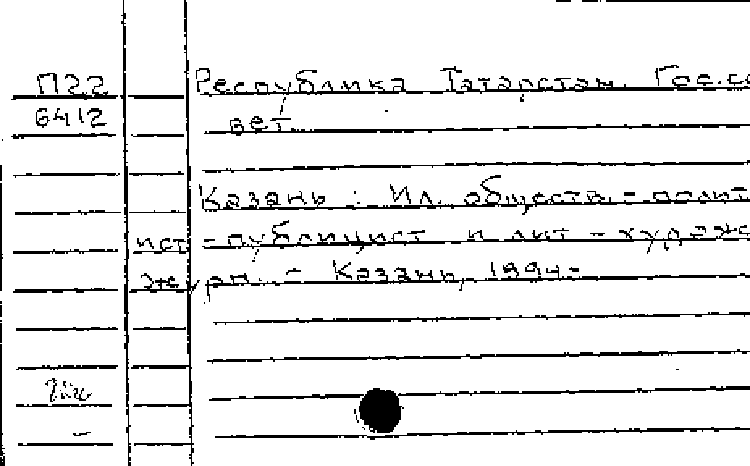 П22 Республика Татарстан. Гос. со
6412 вет.
Казань : Ил. обществ.-полит
ист-публицист и лит-худож
журн. - Казань, 1994-